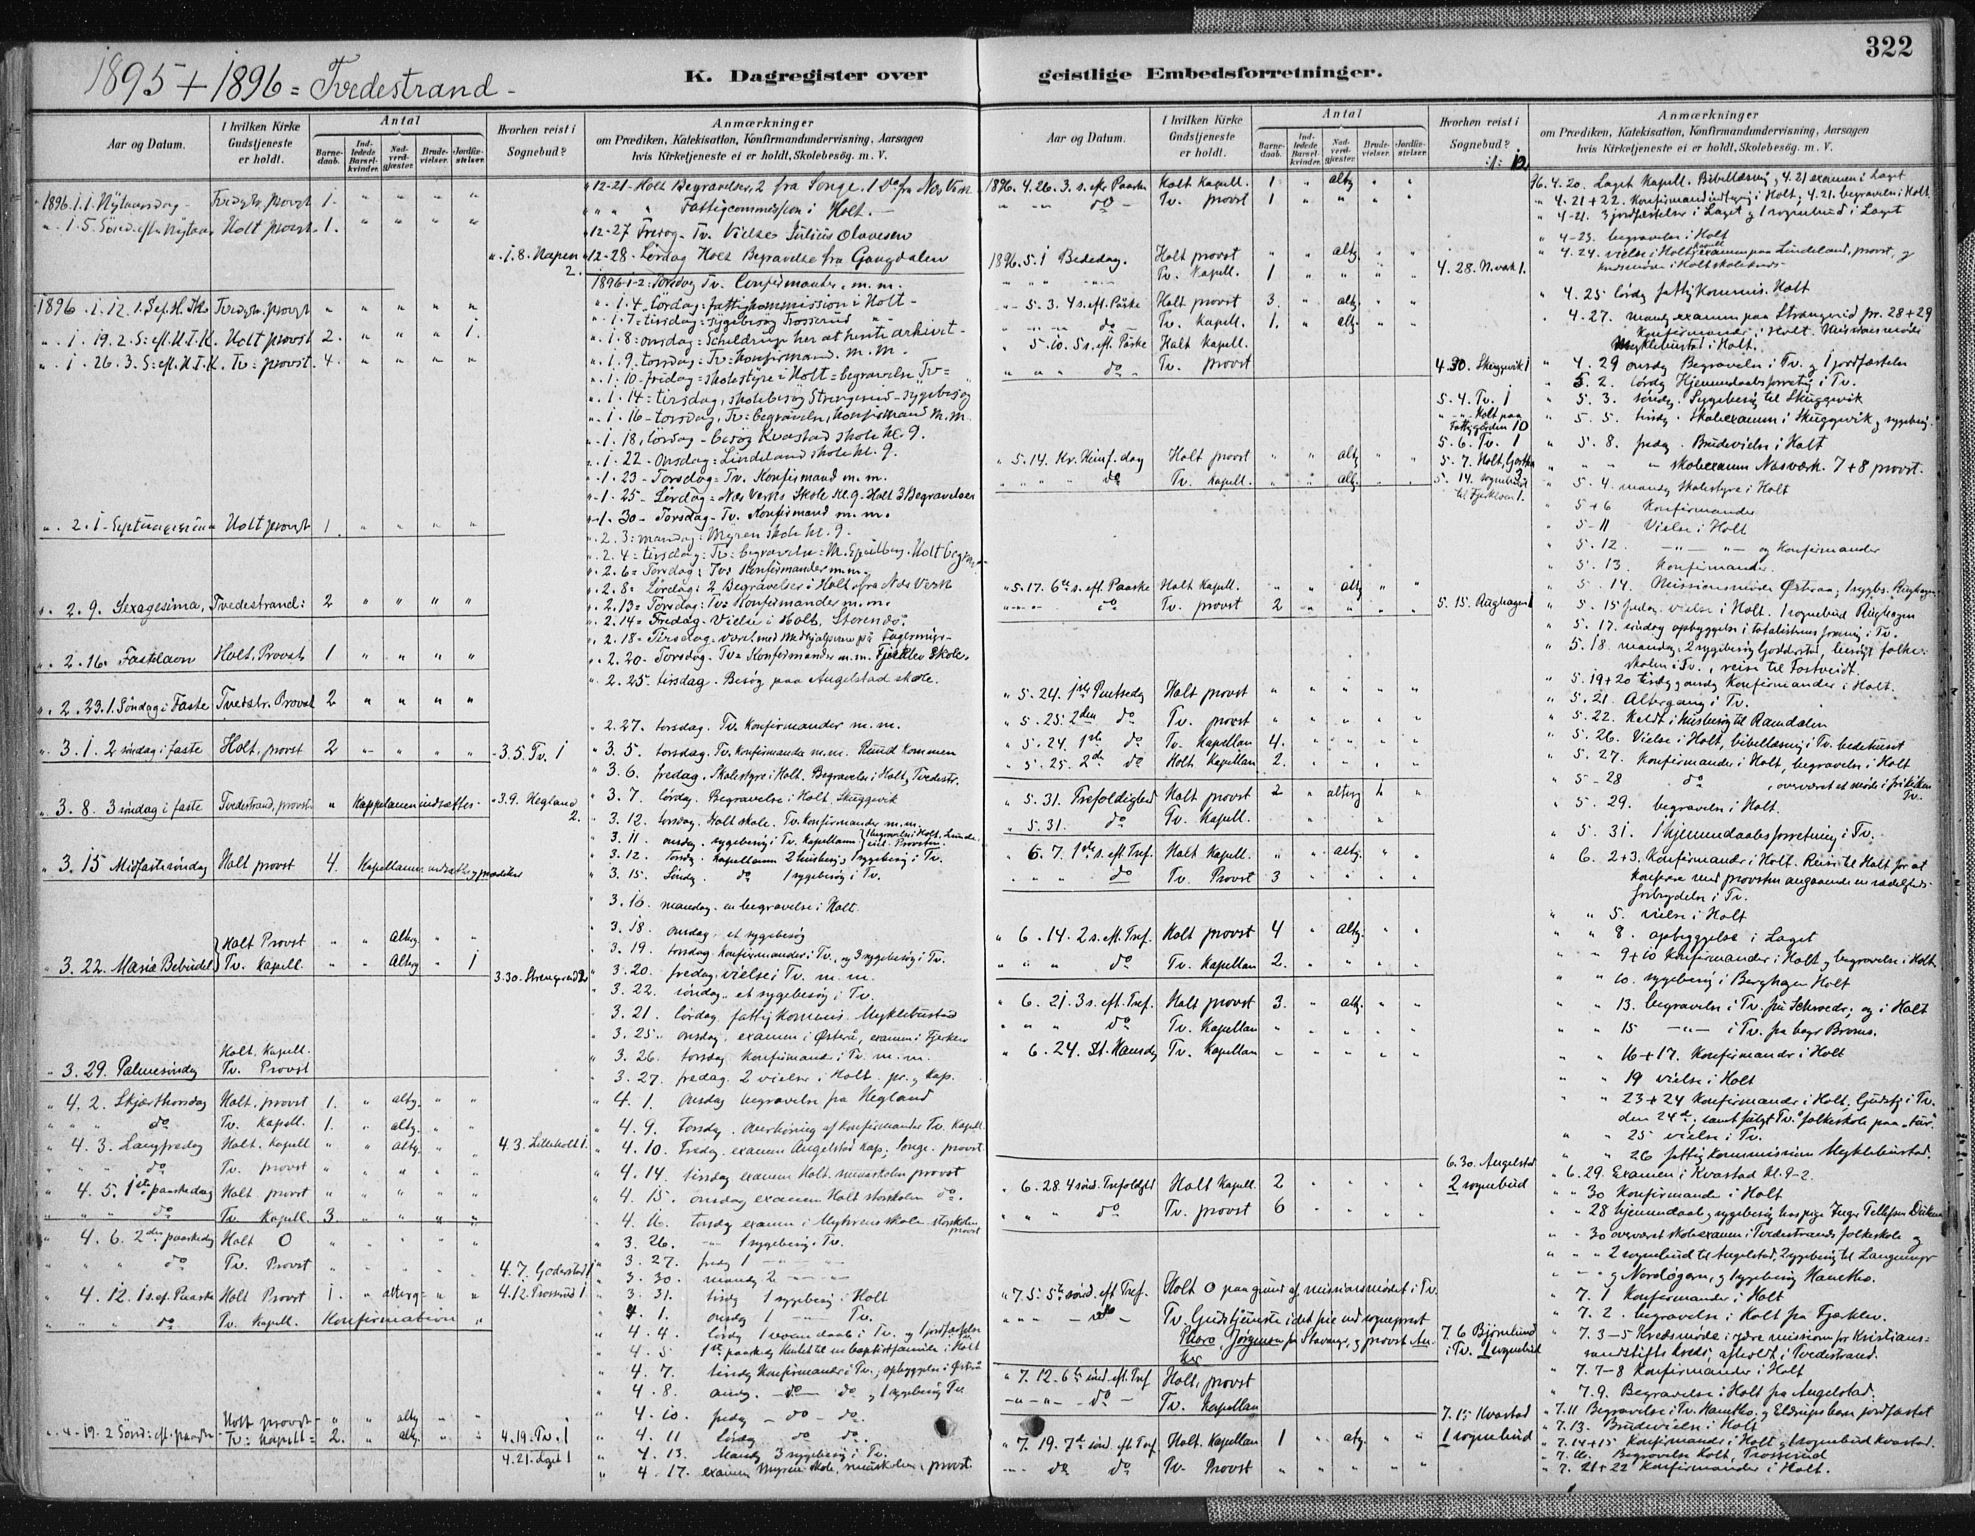 322
1895 + 1896 = Tvedestrand -
K. Dagregister over geistlige Embedsforretninger.
Aar og Datum.
I hvilken Kirke Gudstjeneste er holdt.
Antal
Barnedaab.
Indledede Barselkvinder.
Nadverdgjester.
Brudevielser.
Jordfæstelser.
Hvorhen reist i Sognebud?
Anmærkninger
om Prædiken, Katekisation, Konfirmandundervisning, Aarsagen
hvis Kirketjeneste ei er holdt, Skolebesög. m. V.
1896.1.1. Nytaarsdag - Tvedstr. provst 1.
" 1.5. Holt provst. 1.
1.8. Napen 2.
1896.1.12. Tvedstr. provst
" 1.19. 2. S: eft. H.T.K. Holt provst 2. 1.
" 1.26. 3. S: eft. H.T.K. Tv: provst. 4.
" 2.1 - Septuagesima Holt provst 1.
" 2.9. Sexagesima, Tvedestrand: 2
" 2.16. Fastelavn Holt, Provst 1
" 2.23. 1. Söndag i Faste Tvedstr. Provst 2
" 3.1. 2 söndag i faste Holt, provst 2
3.5. Tv. 1
" 3.8. 3 söndag i faste Tvedestrand, provst Kappelanen indsættes
3.9. Hegland 2.
" 3.15 Midfastesöndag Holt provst 4.
Holt Provst altg.
" 3.22. Mariæ Bebudel. Tv. Kapell. Altg. 1
Holt. Kapell.
" 3.29. Palmesöndag Tv. Provst
" 4.2. Skjærthorsdag Holt, provst 1. altg.
do Tv. Kapell. 1. altg.
" 4.3. Langfredag Holt. Kapell altg.
4.3. Lilleholt 1.
do Tv. provst
" 4.5. 1ste paaskedag Holt provst
do Tv. Kapell. 3.
" 4.6. 2den paaskedag Holt 0
do Tv. Provst
4.7. Goderstad 1
" 4.12. 1 s. ef. Paaske Holt Provst 1. alterg.
4.12. Trosserud 1
do Tv. Kapell. Konfirmation
Holt provst altg.
" 4-19. 2 Sönd: eft. paaske Tv: Kapell 2. altg.
4.19. Tv. 1
4.21. Laget 1
12-21 - Holt Begravelser, 2 fra Songe. 1 do fra Næs Værk
Fattigcommission i Holt. -
12-27 Fredag. Tv. Vielse Julius Olavesen
12-28 - Lördag Holt Begravelse fra Gangdalen
1896-1-2- Torsdag Tv. Confirmanter. m. m.
1.4. lördag: fattigkommission i Holt -
1.7 = tirsdag = sygebesög Trosserud
1.8: onsdag = Scheldrup her at hente arkivet -
1.9. torsdag = Tv: konfirmand. m. m.
1.10. fredag = skolestyre i Holt = begravelse Tv =
1.14: tirsdag, skolebesög Strengereid - sygebesög
1.16 - torsdag, Tv: begravelse, konfirmand m. m.
1.18. lördag - besög Kvastad skole kl. 9.
1.22 - onsdag = Lindeland skole kl. 9.
1.23 - Torsdag = Tv. Konfirmand m. m.
1.25 - Lördag = Næs Verks Skole kl. 9. Holt 3 Begravelser
1.30 - Torsdag - Tv. Konfirmand m. m.
2.3: mandag: Myren skole kl. 9.
2.6 = Torsdag: Tv: Konfirmander m. m.
2.8 = Lördag: 2 Begravelser i Holt fra Næs Verk
2.13 = Torsdag: Tv = Konfirmander m. m.
2.14 = Fredag. Vielse i Holt,
2.20 - Torsdag. Tv = Konfirmander m. m. Fjerklev Skole.
2.25. tirsdag. Besög paa Angelstad skole.
2.27. torsdag. Tv. Konfirmander m. m.
3.5. torsdag. Tv. Konfirmander m. m.
3.6. fredag. Skolestyre i Holt. Begravelse i Holt, Tvedestr.
3.7. lördag. Begravelse i Holt, Skuggvik
3.12. torsdag. Holt skole. Tv. Konfirmander m. m.
3.11. onsdag. sygebesög i Tv. Kapellanen
3.12. torsdag. Kapellanen 2 husbesög, 1 sygebesög i Tv.
3.15. Söndag. do 1 sygebesög i Tv.
3.16. mandag. en begravelse i Holt.
3.18. onsdag. et sygebesög
3.19. torsdag Konfirmander i Tv. og 3 sygebesög i Tv.
3.20. fredag. vielse i Tv. m. m.
3.22. söndag. et sygebesög i Tv.
3.21. lördag. fattigkommis. Myklebustad
3.25. onsdag. examen i Østeraa, examen i Fjerkev
3.26. torsdag Konfirmand. i Tv. m. m.
3.27. fredag. 2 vielser i Holt. pr. og kap.
4.1. Onsdag begravelse fra Hegland
4.9. Torsdag. Overhöring af konfirmander Tv. Kapell.
4.10. Fredag. examen Angelstad kap., Songe. provst
4.14. tirsdag examen Holt. småskolen provst
4.15. onsdag examen Holt storskolen do.
4.16. torsdag examen i Myhrens skole. storskolen provst
3.26. 1 sygebesög i Tv.
3.27. fredag 1
3.30. mandag 2
3.31. tirsdag 1 sygebesög i Holt
4.1. onsdag 1 Tv.
4.4. lördag 1 voxendaab i Tv. og 1 jordfæstelse
4.5 1ste paaskedag Hentet til en baptistfamilie i Holt
4.7. tirsdag Konfirmander i Tv., opbyggelse i Østeraa
4.8. onsdag - do - do og 1 sygebesög Tv.
4.10. fredag - do - do.
4.11 lördag do do.
4.13. Mandag 3 sygebesög i Tv.
4.17. examen Myrene skole, småskolen, provst
1896.4.26. 3. s. eft. Paaske Holt Kapell. 1 altg
do Tv. provst 1
1896.5.1 Bededag. Holt provst altg
Tv. Kapell. 1
4.28. N. værk 1.
5.3. 4 s. eft. Påske Holt provst 3. altg.
do Tv. Kapell. 1. altg.
5.10. 5 s. ef. Påske Holt Kapell.
do Tv. provst
4.30. Skuggevik 1
5.4. Tv. 1
Holt paa Fattiggården 10
5.6. Tv. 1
5.14. Kr. Himf. dag Holt provst altg
do Tv. Kapell. altg.
5.14. sognebud
5.17. 6te s. eft. Paaske Holt Kapell. altg
do Tv. provst 2
5.15. Aughagen 1
5.24. 1ste Pintsedag Holt provst
5.25. 2den do Tv. provst
5.24. 1ste do Tv. Kapellan 4.
5.25. 2den do Holt Kapellan 2.
5.31. Trefoldighed Holt provst 2 alterg
5.31. do Tv. Kapell.
6.7. 1ste s. eft. Tref. Holt Kapell. altg.
do Tv. Provst 3
6.14. 2 s. eft. Tref. Holt provst 4 altg.
do Tv. Kapellan 2.
6.21. 3 s. eft Tref. Holt provst 3. altg.
do Tv. Kapellan
6.24. St. Hansdag Tv. Kapellan
6.30. Angelstad
2 sognebud
6.28. 4 sönd. Trefoldighd Holt Kapell. 2
do Tv. provst 6
7.5. 5te sönd. eft Tref. Holt 0 paa grund af missionsmödet i Tv.
do - Tv. Gudstjeneste i det frie ved sogneprest
Jörgensen fra Stavanger, og provst Anker
7.6 Björnelund
i Tv. 1 sognebud
7.12. 6te sönd. eft. Tref Holt, provst
do - Tv. Kapellan
7.15 Kvastad
1 sognebud
7.19. 7de sönd. eft Tref. Holt. Kapellan 1 altg.
do do Tv. Provst
96. 4.20. Laget Kapell. Bibellæsning, 4.21 examen i Laget
4.21+22. Konfirmand i Holt; 4.21. begravelse i Holt.
4-21. 3 jordfæstelser i Laget og 1 sognebud i Laget
4-23. begravelse i Holt
4.24. vielse i Holt, Kapell examen paa Lindeland, provst, og
4.25 lördag fattigkommis. Holt
4.27. mandag examen paa Strengereid pr. 28+29
Konfirmander i Holt. Missionsmöde
Myklebustad i Holt.
4.29 onsdag Begravelse i Tv. og 1 jordfæstelse
5.2. lördag Hjemmedaabsforretning i Tv.
5.3. söndag. Sygebesög til Skuggevik
5.5. tirsdag. Skoleexamen i Skuggevik og sygebesög
5.8. fredag. Brudevielse i Holt
skoleexamen Næsværk. 7+8 provst.
5.4. mandag skolestyre i Holt
5+6 Konfirmander
5-11 Vielse i Holt
5.12. - " - " - og Konfirmander
5.13. Konfirmander.
5.14. Missionsmöde Østeraa;
5.15 fredag. vielse i Holt. 1 sognebud Aughagen
5.17. söndag opbyggelse i totalistens forening i Tv.
5.18. mandag. 2 sygebesög Godderstad,
skolen i Tv., reise til Fostveidt.
5.19+20 tirsdag onsdag Konfirmander i Holt.
5.21. Altergang i Tv.
5.22. Keldt i husbesög til Ramdalen
5.26. Vielse i Holt, bibellæsning i Tv. bedehuset
5.27. Konfirmander i Holt, begravelse i Holt
5-28 do, overværet et möde i frikirken Tv.
5.29. begravelse i Holt.
5.31. 1 hjemmedaabsforretning i Tv.
6. 2+3. Konfirmander i Holt. Reise til Holt for at
konferere med provsten angaaende en sædeligheds-
forbrydelse i Tv.
5. vielse i Holt
8. opbyggelse i Laget
9+10 Konfirmander i Holt og begravelse i Holt
10. sygebesög i Berghagen Holt
13. begravelse i Tv. fru Schroeder; og i Holt
15 - " - i Tv.
16+17. Konfirmander i Holt
19 vielse i Holt
23+24 Konfirmander i Holt, Gudstj i Tv.
den 24de, samt fulgt Tv.s folkeskole paa "tur".
25 vielse i Tv.
26 fattigkommission Myklebustad.
6.29. Examen i Kvastad kl. 9-2.
30 Konfirmander i Holt
28 hjemmedaab og sygebesög hos pige Inger Tellefsen
30 overværet skoleexamen i Tvedestrands folkeskole og
2 sognebud til Angelstad, 2 sygebesög til Langemyr
7.1 Konfirmander i Holt
7.2. begravelse i Holt fra Fjerklev.
7.3-5 Kredsmöde i indre mission for Kristians-
sandstifts kreds, afholdt i Tvedestrand.
7.7-8 Konfirmander i Holt
7.9. Begravelse i Holt fra Angelstad.
7.13. Brudevielse i Holt
7.14+15 Konfirmander i Holt og 1 sognebud Kvastad.
7.16. Begravelse Holt, Trosserud
7.21+22 Konfirmander i Holt.